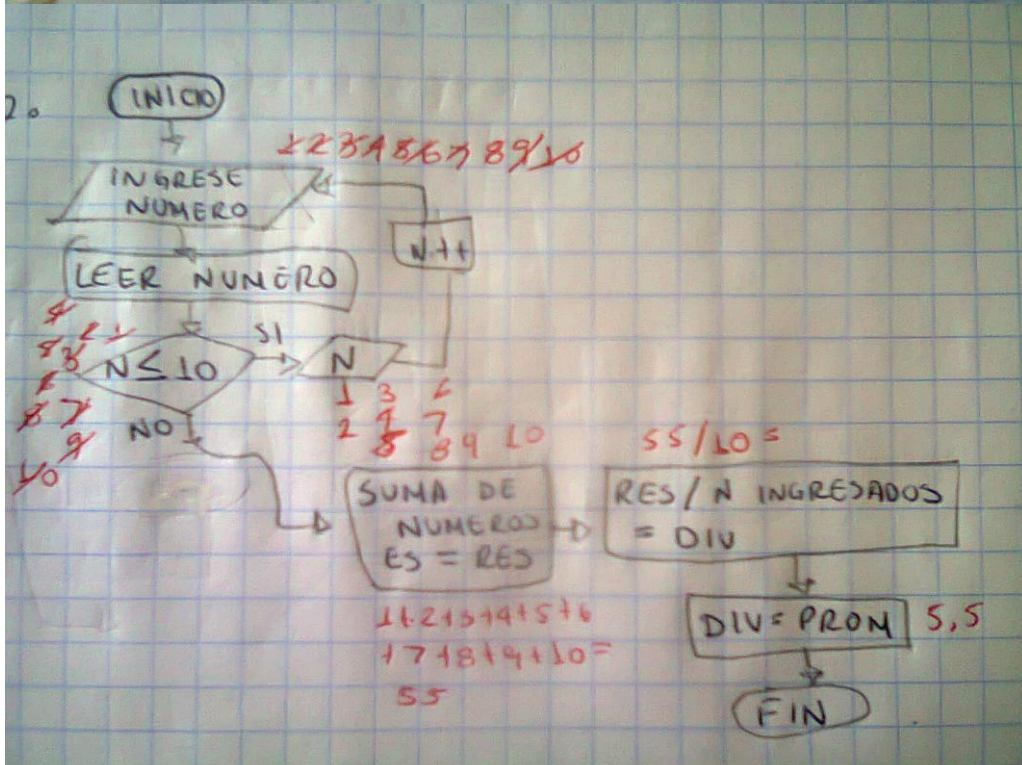 2.
INICIO
1 2 3 4 5 6 7 8 9 10
INGRESE
NUMERO
N++
LEER NUMERO
SI
N ≤ 10
N
NO
1 3 6
2 4 7
5 8 9 10
55/10 =
SUMA DE
NUMEROS
ES = RES
RES / N INGRESADOS
= DIV
1+2+3+4+5+6
+7+8+9+10=
55
DIV = PROM
5,5
FIN